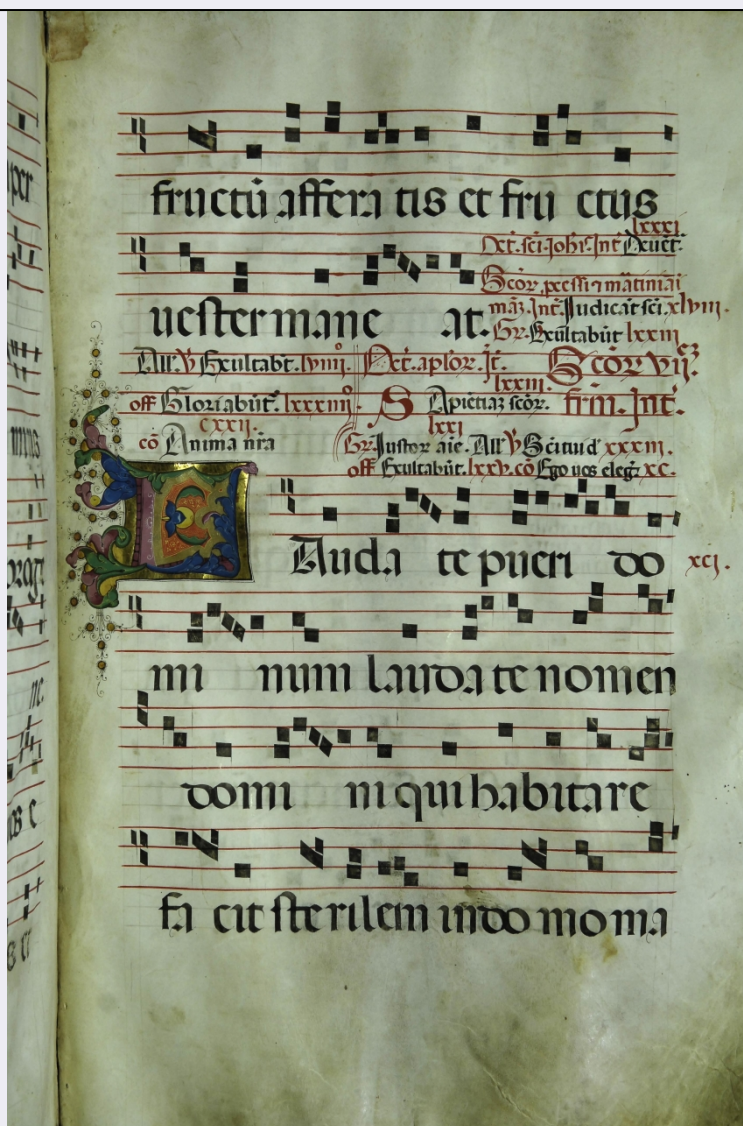 fructū affera tis et fru ctus
lxxxi
Oct. sci. Joh̄is. Int̄ De uēt.
uester mane at.
Scōr
māʒ. Int̄. Judicāt sci. xlviii.
Gr. Exultabūt lxxiii
All. ℣ Exultabt. lviiii°. Oct. aplōr. Īt. Scōr vii
lxxiii
off Gloriabūt. lxxxiiii Sapiētiaʒ scōr. frm. Int̄.
cxxii. lxxi
cō Anima nr̄a Gr. Justor aīe. All ℣ xxxiii.
off Exultabūt. lxxv. cō Ego uos elegi xc.
Lauda te pueri do xci.
mi num lauda te nomen
domi ni qui habitare
fa cit sterilem in do mo ma